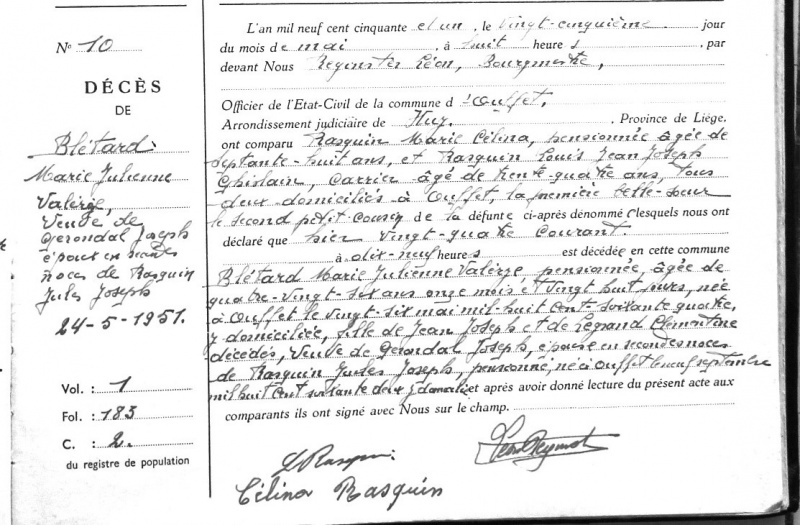 N° 10
DÉCÈS
DE
Blétard
Marie Julienne
Valérie,
Veuve de
Gerondal Joseph
épouse en secondes
noces de Rasquin
Jules Joseph
24-5-1951.
Vol. : 1
Fol. : 183
C. : 2.
du registre de population
L'an mil neuf cent cinquante et un, le vingt-cinquième jour
du mois de mai, à huit heures, par
devant Nous Reginster Léon, Bourgmestre,
Officier de l'Etat-Civil de la commune d'Ouffet,
Arrondissement judiciaire de Huy. , Province de Liége.
ont comparu Rasquin Marie Célina, pensionnée âgée de
septante-huit ans, et Rasquin Louis Jean Joseph
Ghislain, carrier âgé de trente-quatre ans, tous
deux domiciliés à Ouffet, la première belle-sœur
le second petit cousin de la défunte ci-après dénommé e lesquels nous ont
déclaré que hier vingt-quatre courant
à dix-neuf heures est décédée en cette commune
Blétard Marie Julienne Valérie pensionnée, âgée de
quatre-vingt-six ans onze mois et vingt huit jours, née
à Ouffet le vingt-six mai mil-huit cent soixante quatre,
y domiciliée, fille de Jean Joseph et de Legrand Clémentine
décédés, Veuve de Gerondal Joseph, épouse en secondes noces
de Rasquin Jules Joseph, pensionné, né à Ouffet le neuf septembre
mil huit cent soixante deux y domicilié et après avoir donné lecture du présent acte aux
comparants ils ont signé avec Nous sur le champ.
L Rasquin
Célina Rasquin